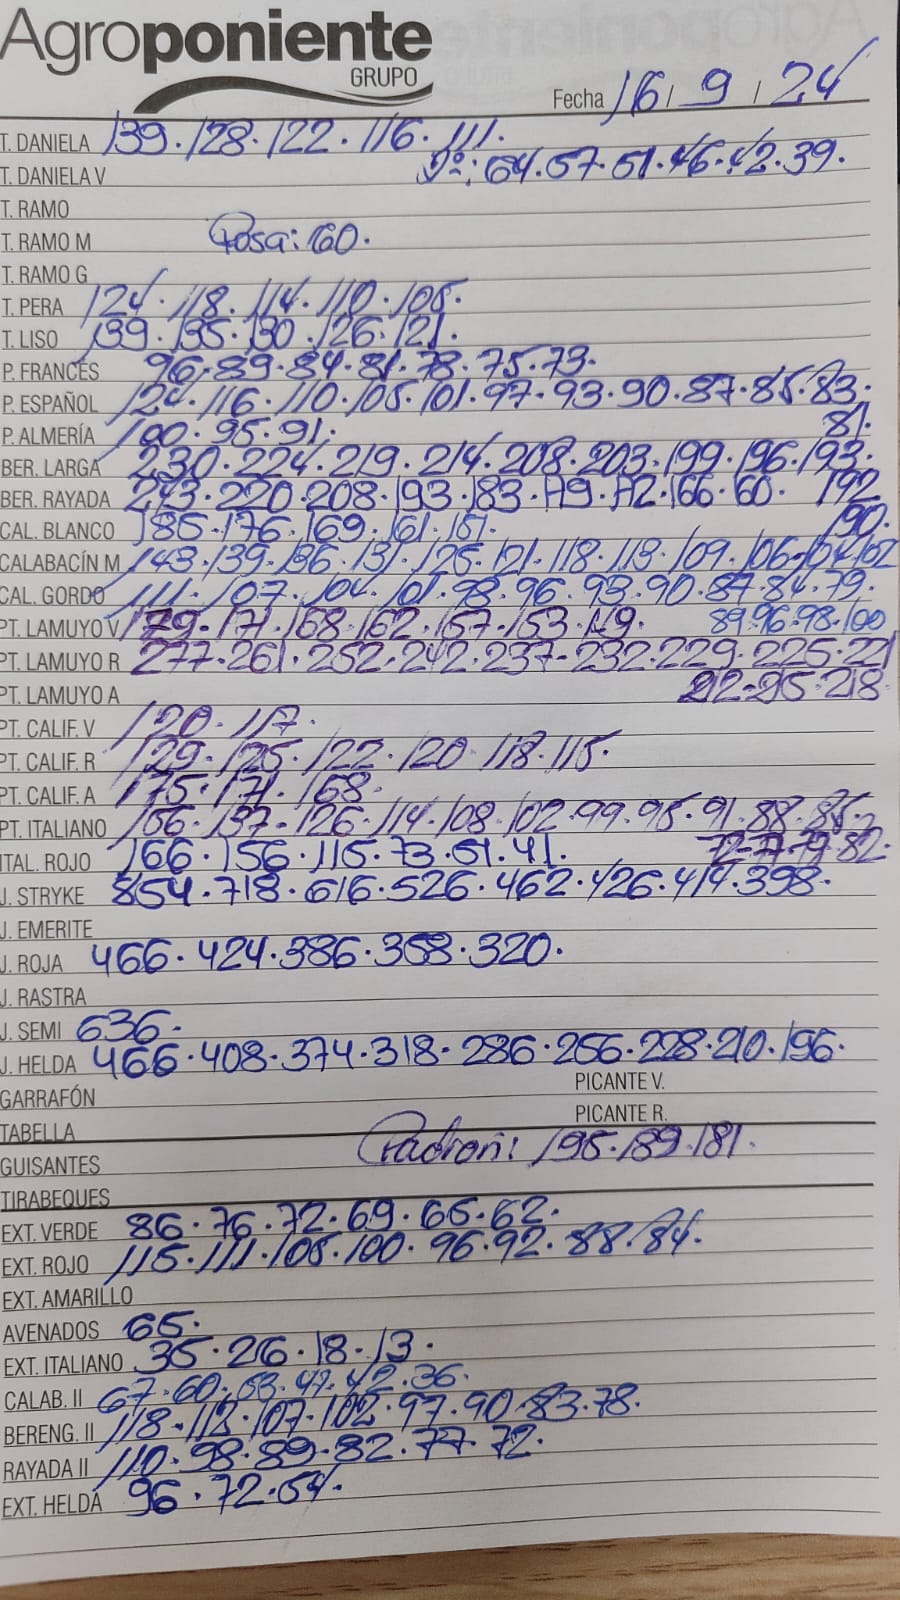 Agroponiente
GRUPO
Fecha 16/9/24
T. DANIELA 139.128.122.116.111.
T. DANIELA V 2ª: 64.57.51.46.42.39.
T. RAMO
T. RAMO M Rosa: 60.
T. RAMO G
T. PERA 124.118.114.110.105.
T. LISO 139.135.130.126.121.
P. FRANCÉS 96.89.84.81.78.75.73.
P. ESPAÑOL 124.116.110.105.101.97.93.90.87.85.83.
P. ALMERÍA 100.95.91. 81.
BER. LARGA 230.224.219.214.208.203.199.196.193.
BER. RAYADA 243.220.208.193.183.179.172.166.60. 192
CAL. BLANCO 185.176.169.161.151. 190.
CALABACÍN M 143.139.136.131.125.121.118.113.109.106.104.102
CAL. GORDO 111.107.104.101.98.96.93.90.87.84.79.
PT. LAMUYO V 179.171.168.162.157.153.149. 89.96.98.100
PT. LAMUYO R 277.261.252.242.237.232.229.225.221
PT. LAMUYO A 212.215.218
PT. CALIF. V 120.117.
PT. CALIF. R 129.125.122.120.118.115.
PT. CALIF. A 175.171.168.
PT. ITALIANO 166.137.126.114.108.102.99.95.91.88.85.
ITAL. ROJO 166.156.115.73.51.41. 72.77.79.82.
J. STRYKE 854.718.616.526.462.426.414.398.
J. EMERITE
J. ROJA 466.424.386.358.320.
J. RASTRA
J. SEMI 636.
J. HELDA 466.408.374.318.286.256.228.210.196.
GARRAFÓN PICANTE V.
TABELLA PICANTE R.
GUISANTES Padron: 195.189.181.
TIRABEQUES
EXT. VERDE 86.76.72.69.65.62.
EXT. ROJO 115.111.105.100.96.92.88.84.
EXT. AMARILLO
AVENADOS 65.
EXT. ITALIANO 35.26.18.13.
CALAB. II 67.60.53.47.42.36.
BERENG. II 118.112.107.102.97.90.83.78.
RAYADA II 110.98.89.82.77.72.
EXT. HELDA 96.72.54.